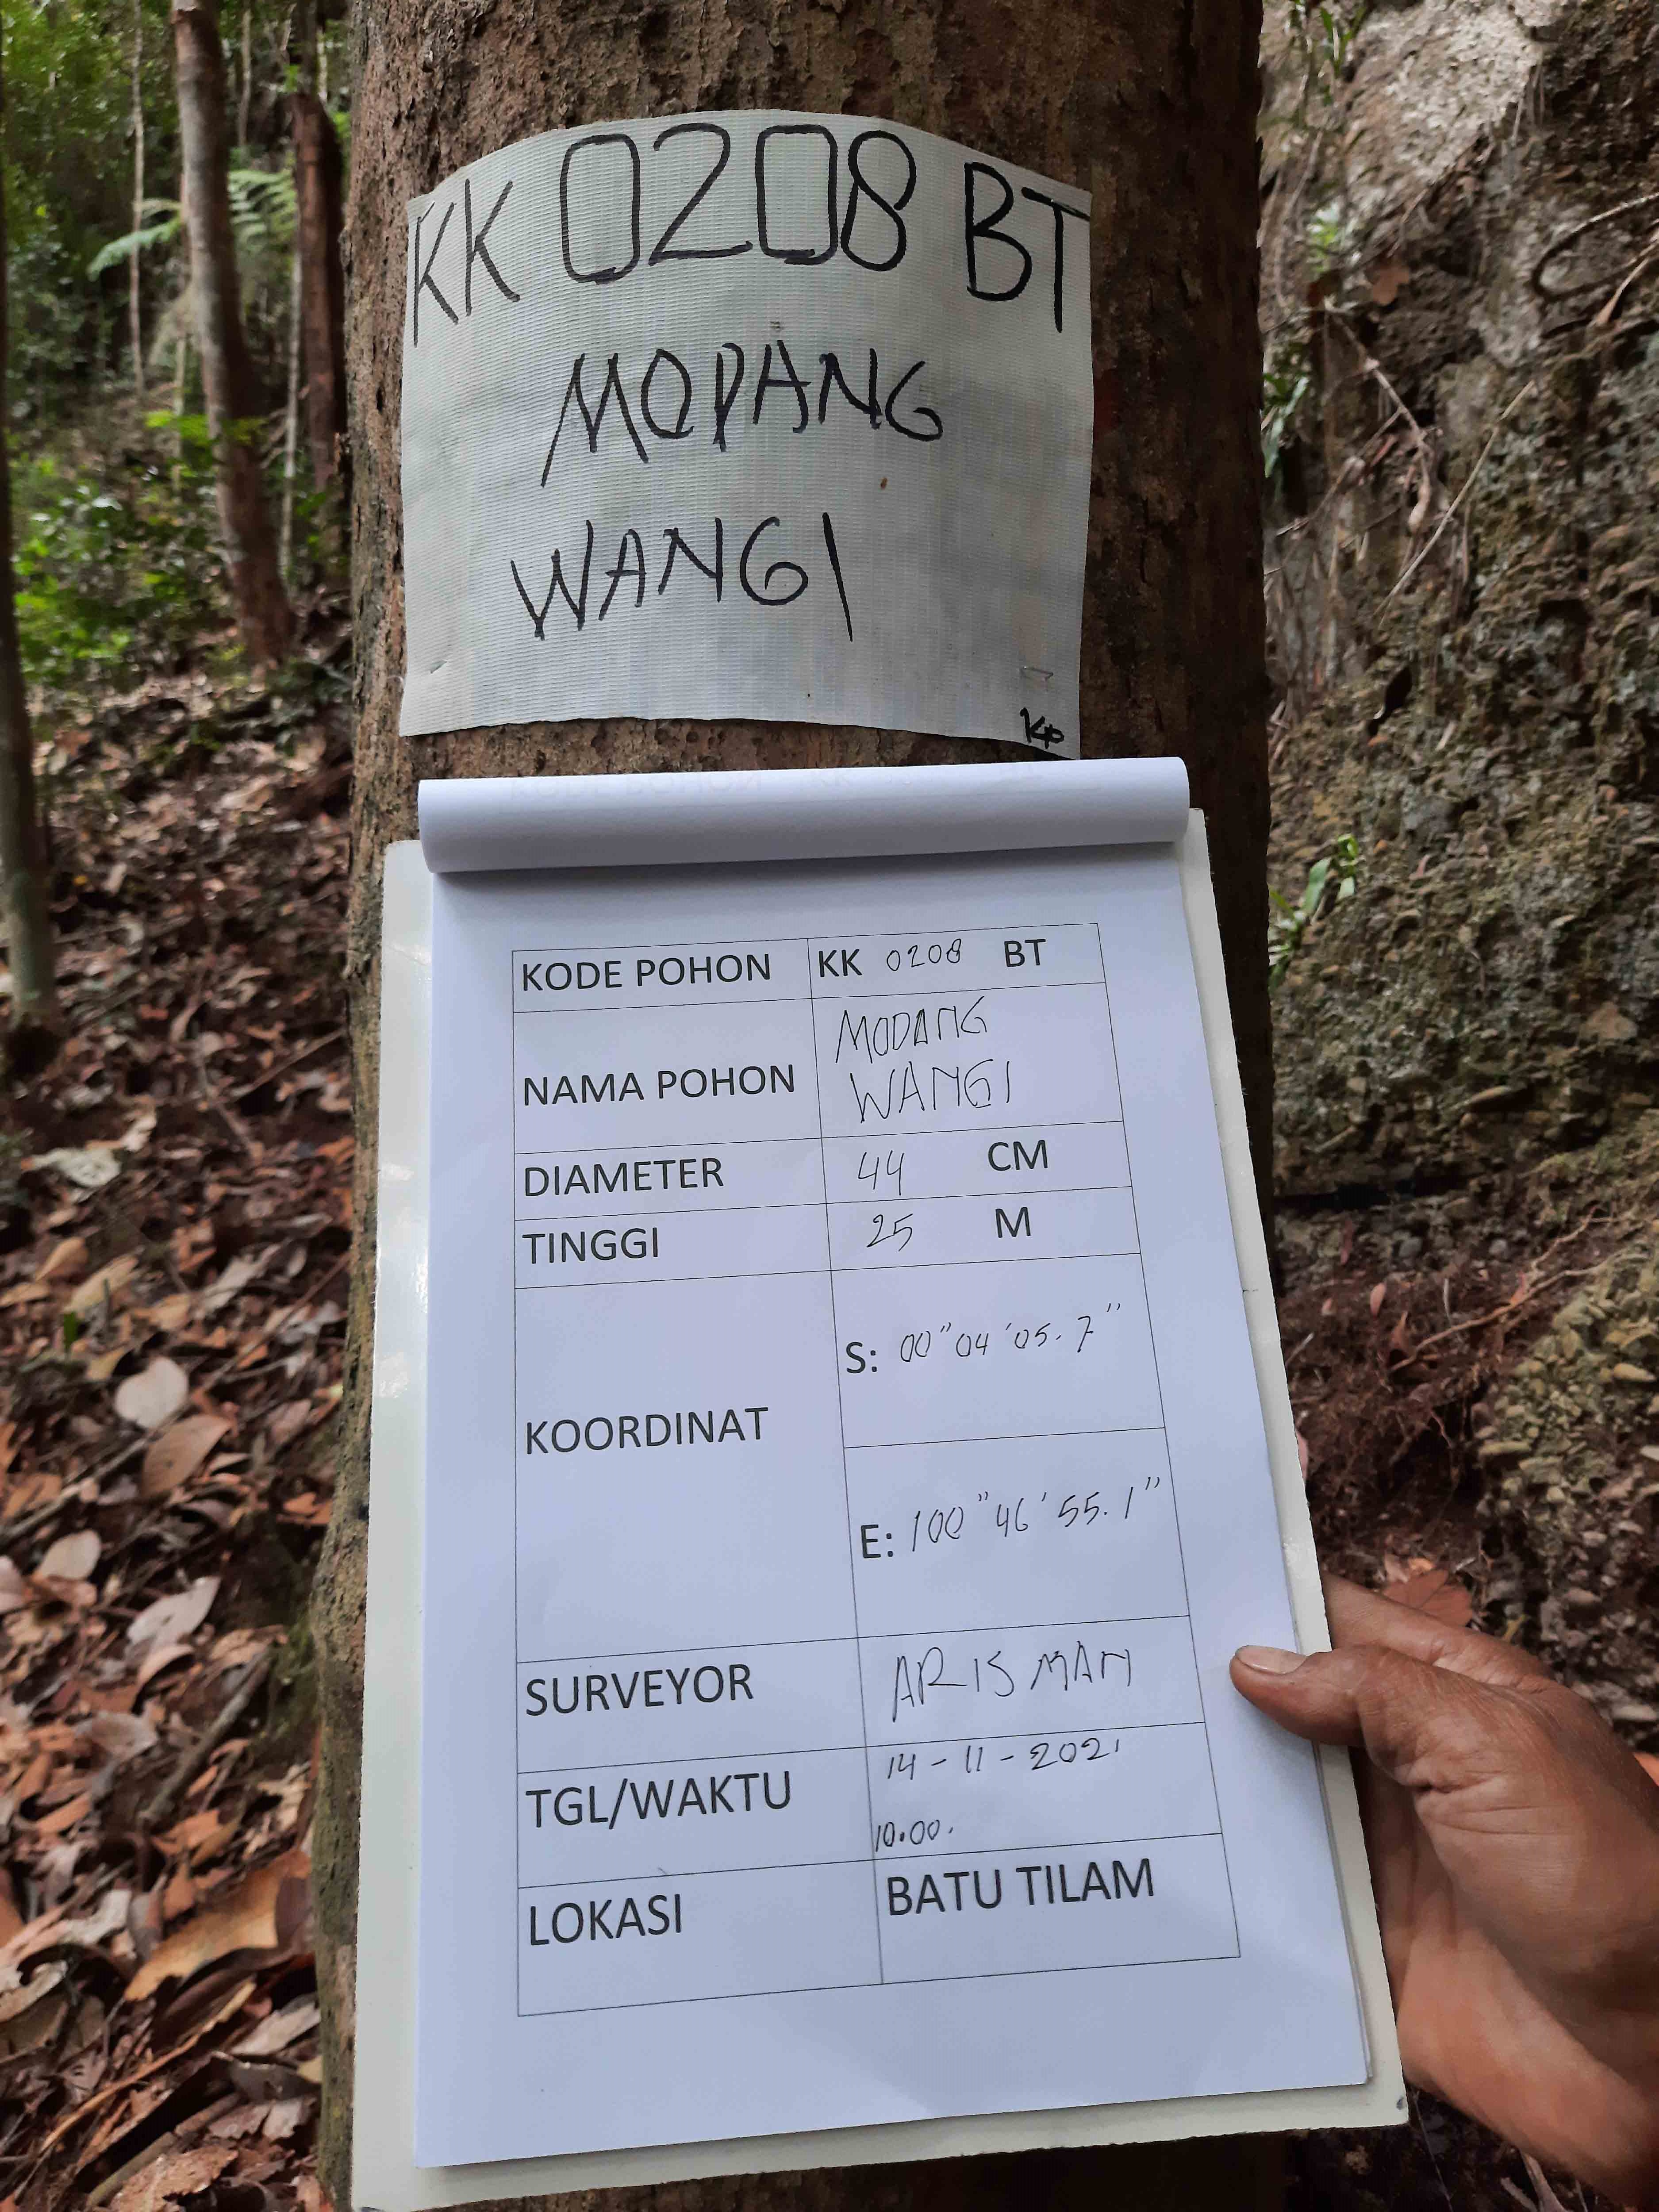 KK 0208 BT
MODANG
WANGI
KP
KODE POHON KK 0208 BT
NAMA POHON MODANG
WANGI
DIAMETER 44 CM
TINGGI 25 M
KOORDINAT S: 00"04'05.7"
E: 100"46'55.1"
SURVEYOR ARISMAN
TGL/WAKTU 14-11-2021
10.00.
LOKASI BATU TILAM